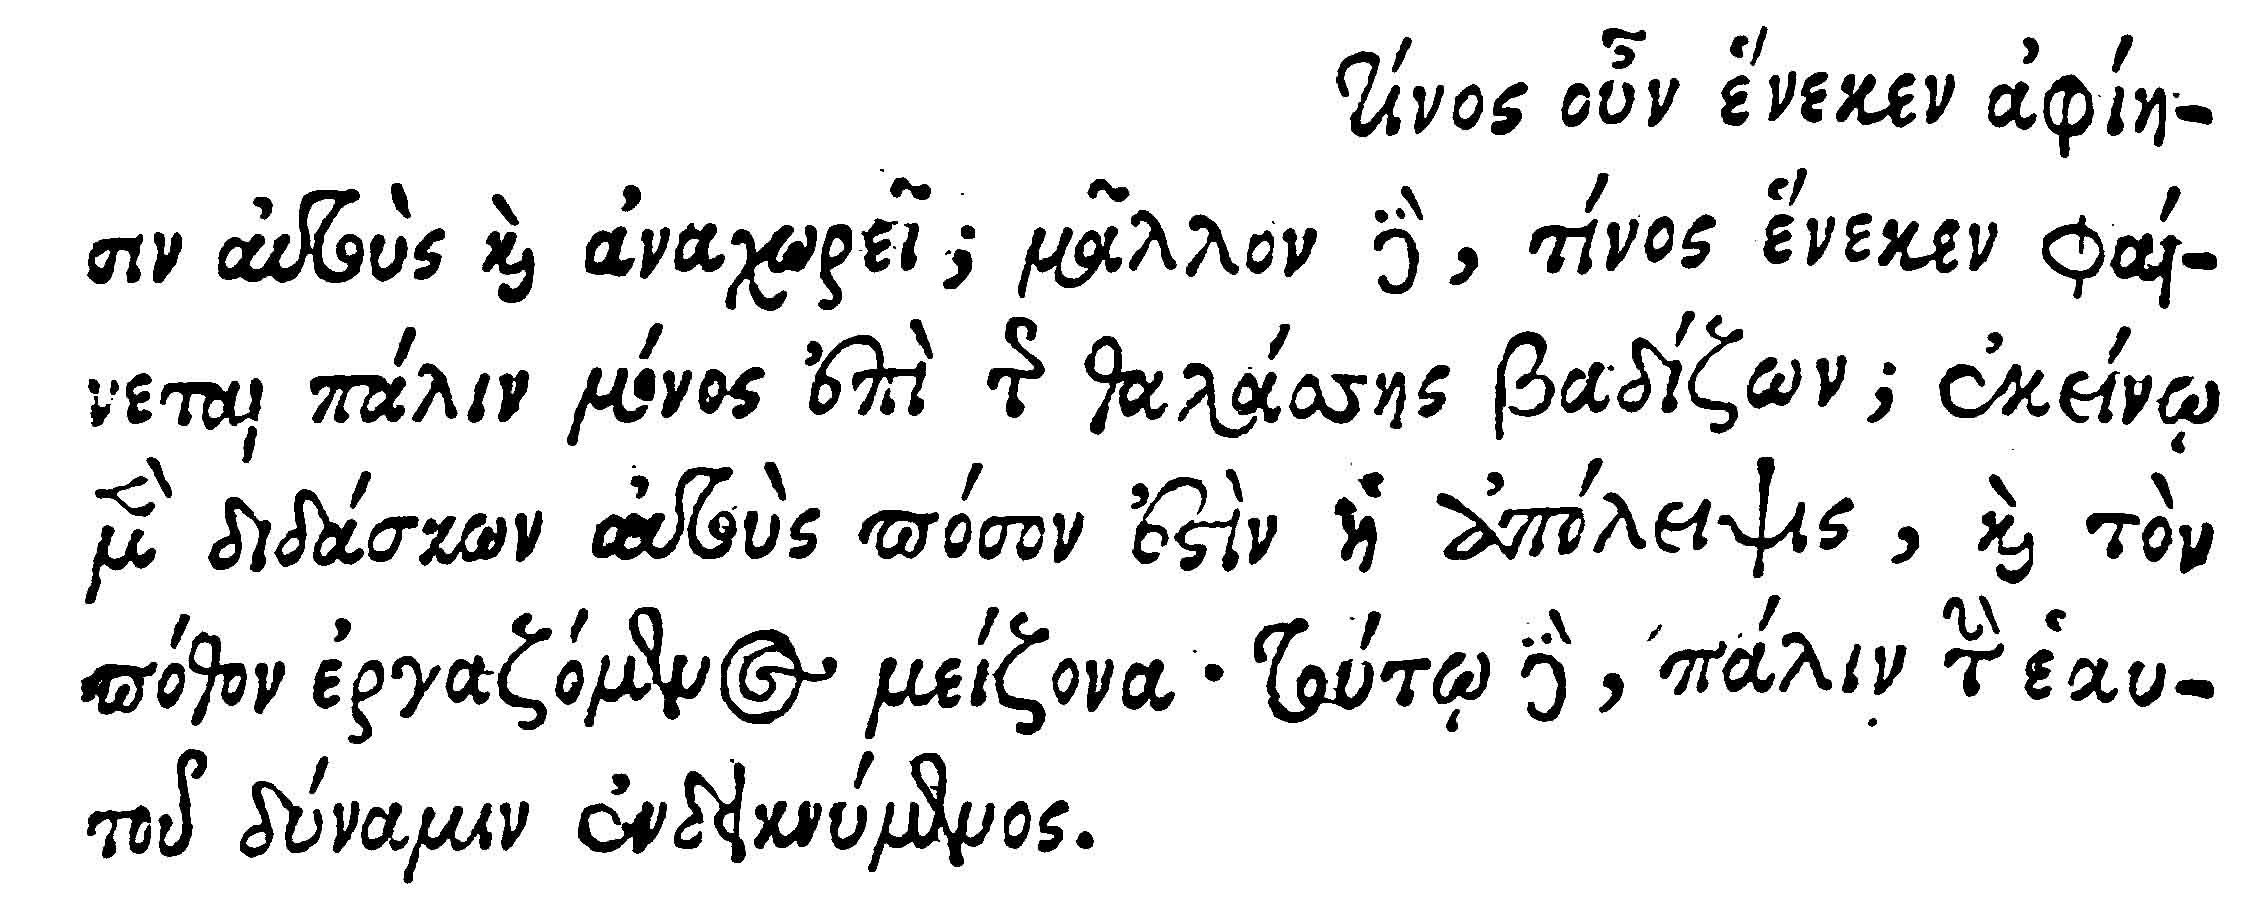 Τίνος οὖν ἕνεκεν ἀφίη-
σιν αὐτοὺς καὶ ἀναχωρεῖ; μᾶλλον δὲ, τίνος ἕνεκεν φαί-
νεται πάλιν μόνος ἐπὶ τῆς θαλάσσης βαδίζων; ἐκείνῳ
μὲν διδάσκων αὐτοὺς πόσον ἐστὶν ἡ ἀπόλειψις, καὶ τὸν
πόθον ἐργαζόμενος μείζονα· τούτῳ δὲ, πάλιν τὴν ἑαυ-
τοῦ δύναμιν ἐνδεικνύμενος.